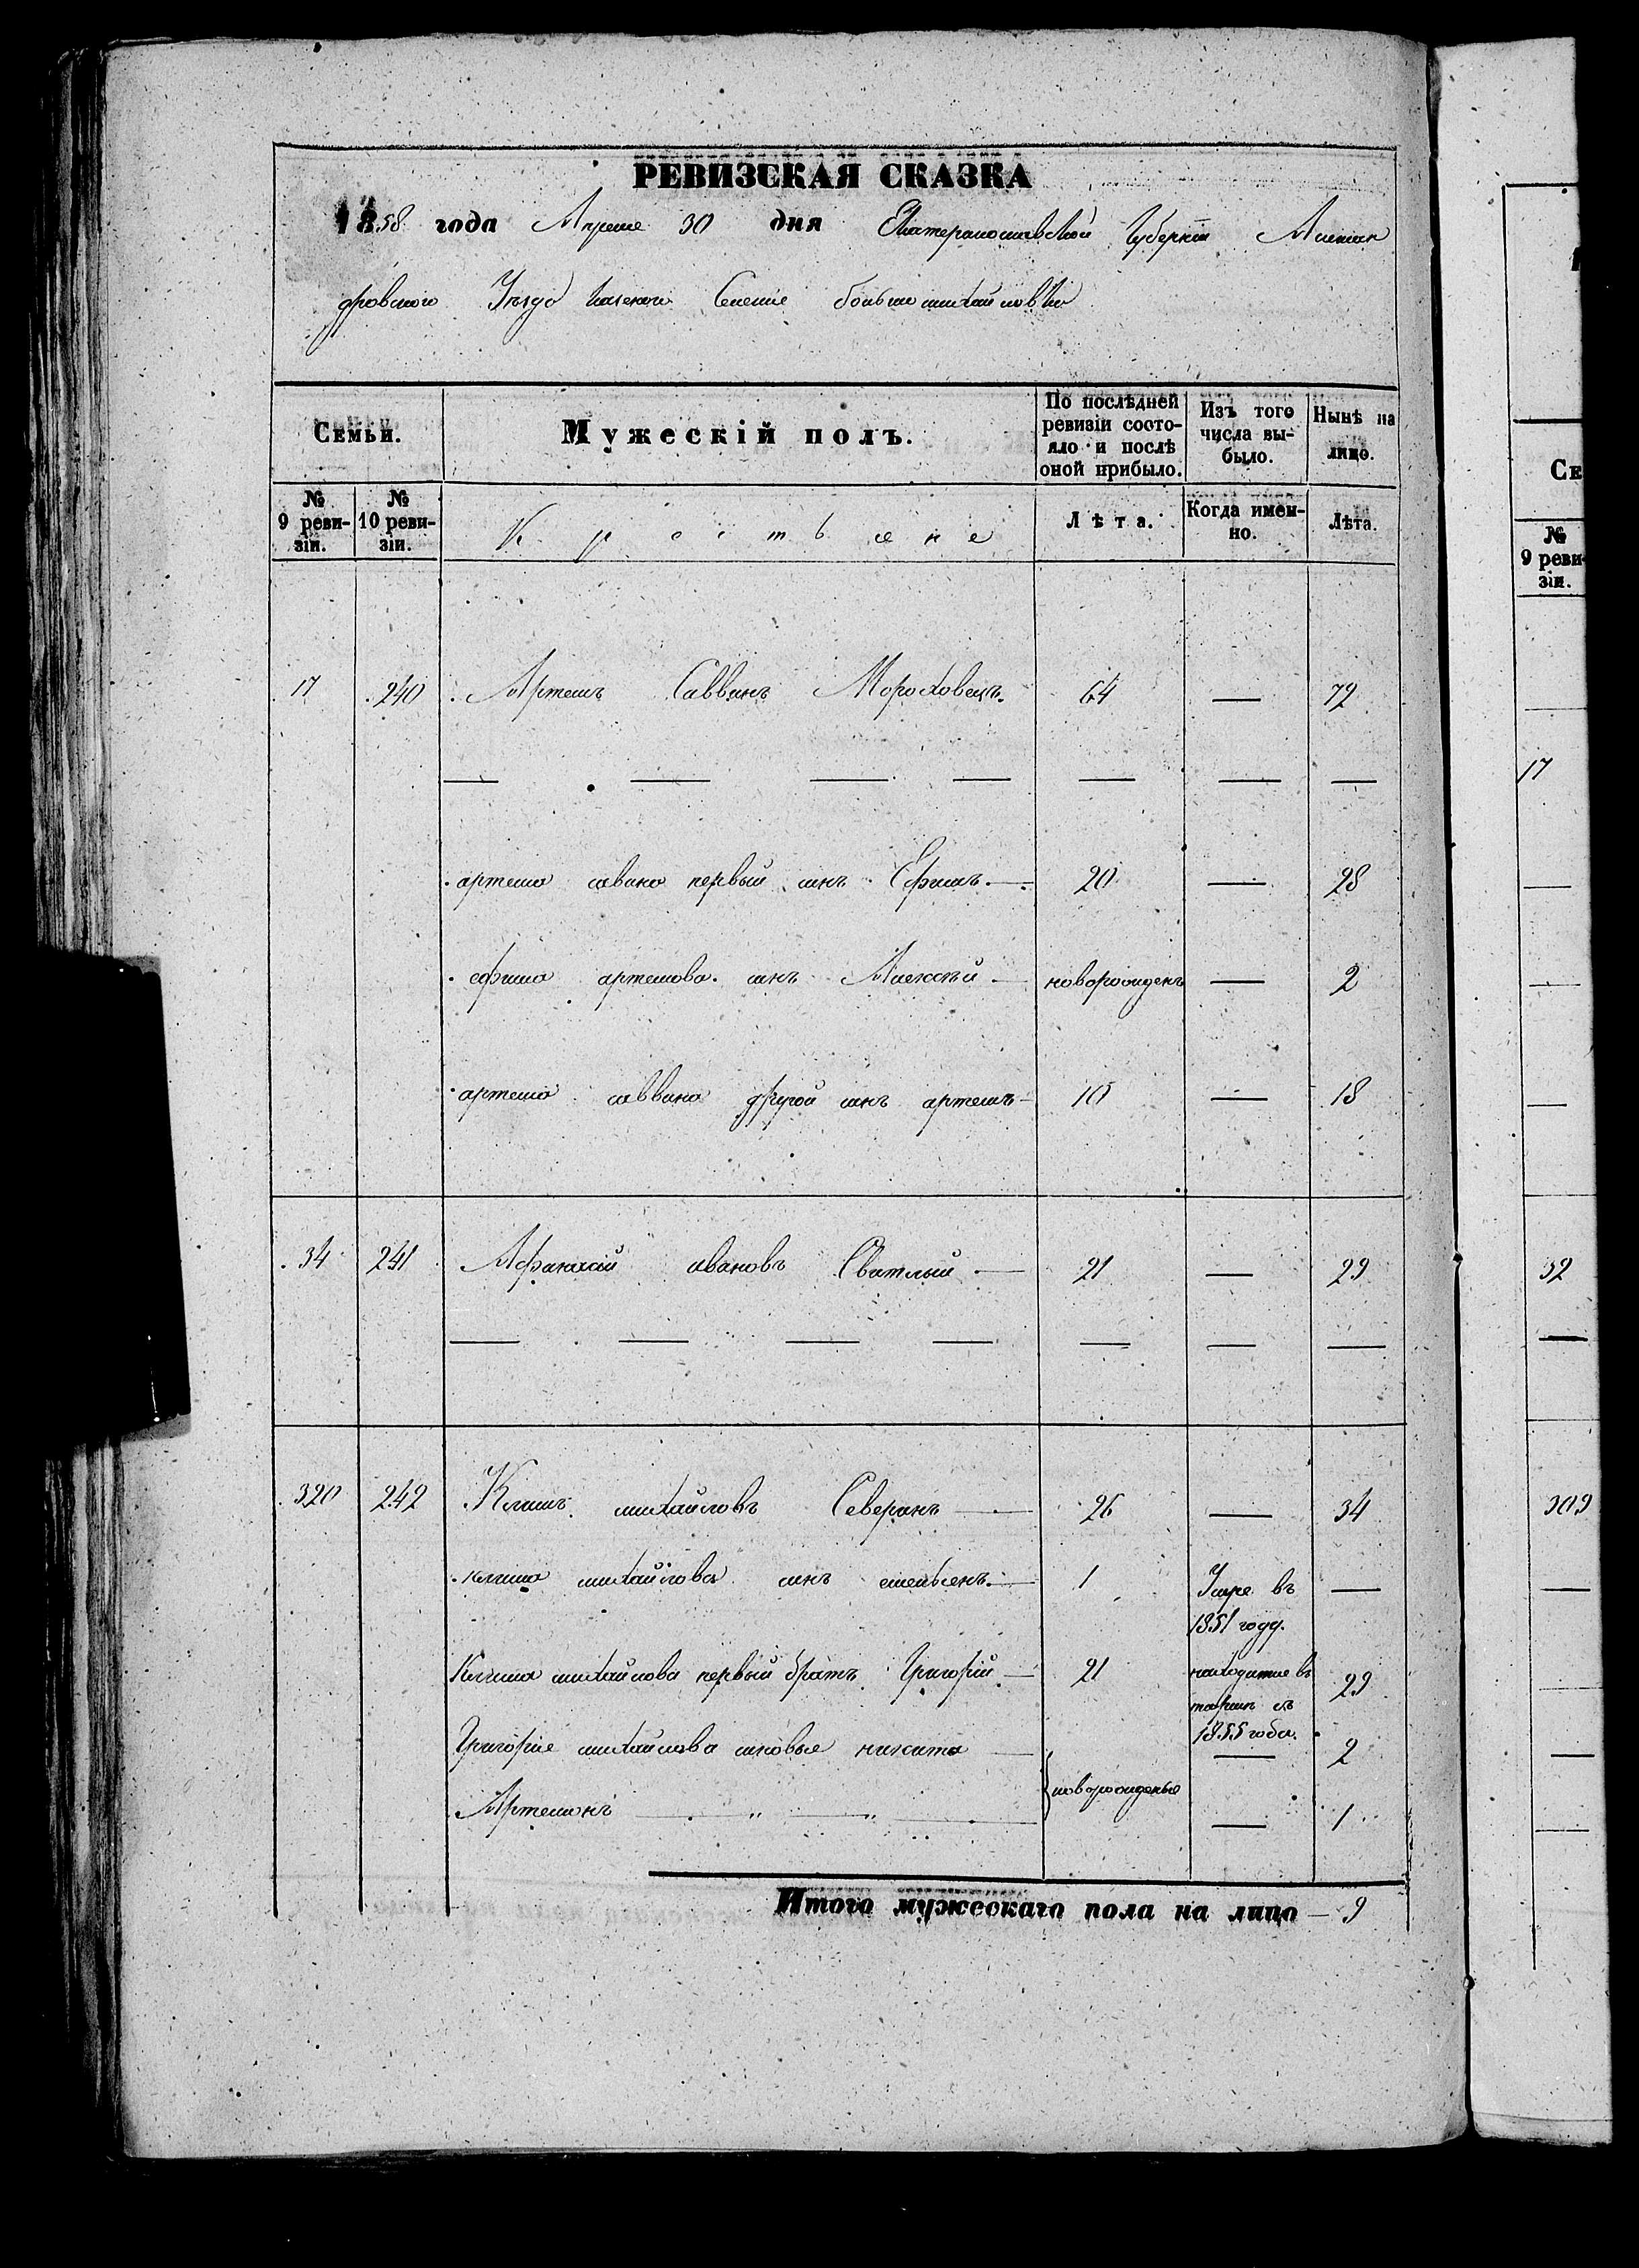 РЕВИЗСКАЯ СКАЗКА
1858 года Апреле 30 дня Екатеринославской Губернiи Алексан
дровского Уезда казенаго Селение большемихайловки
Семьи.
Мужескій полъ.
По послѣдней ревизіи состо-
яло и послѣ
оной прибыло.
Изъ того
числа вы-
было.
Нынѣ на
лицо.
№
9 реви-
зіи.
№
10 реви-
зіи.
Крестьяне
Лѣта.
Когда имен-
но.
Лѣта.
17 240 Артемъ Саввинъ Мороховецъ 64 — 72
— — — — — — —
артема савина первый синъ Ефимъ — 20 — 28
ефима артемова синъ Алексѣй — новорожденъ — 2
артема саввина другой синъ артемъ — 10 — 18
34 241 Афанасій ивановъ Святный — 21 — 29
— — — — — — —
320 242 Климъ михайловъ Северинъ — 26 — 34
клима михайлова синъ семенъ — 1 Умре въ —
1851 году.
Клима михайлова первый братъ Григорій — 21 находитце въ 29
1855 года.
Григорие михайлова синовье никита — — 2
новорожденые
Артемонъ — " — " — — 1
Итого мужескаго пола на лицо — 9
Се
№
9 реви-
зіи.
17
32
309